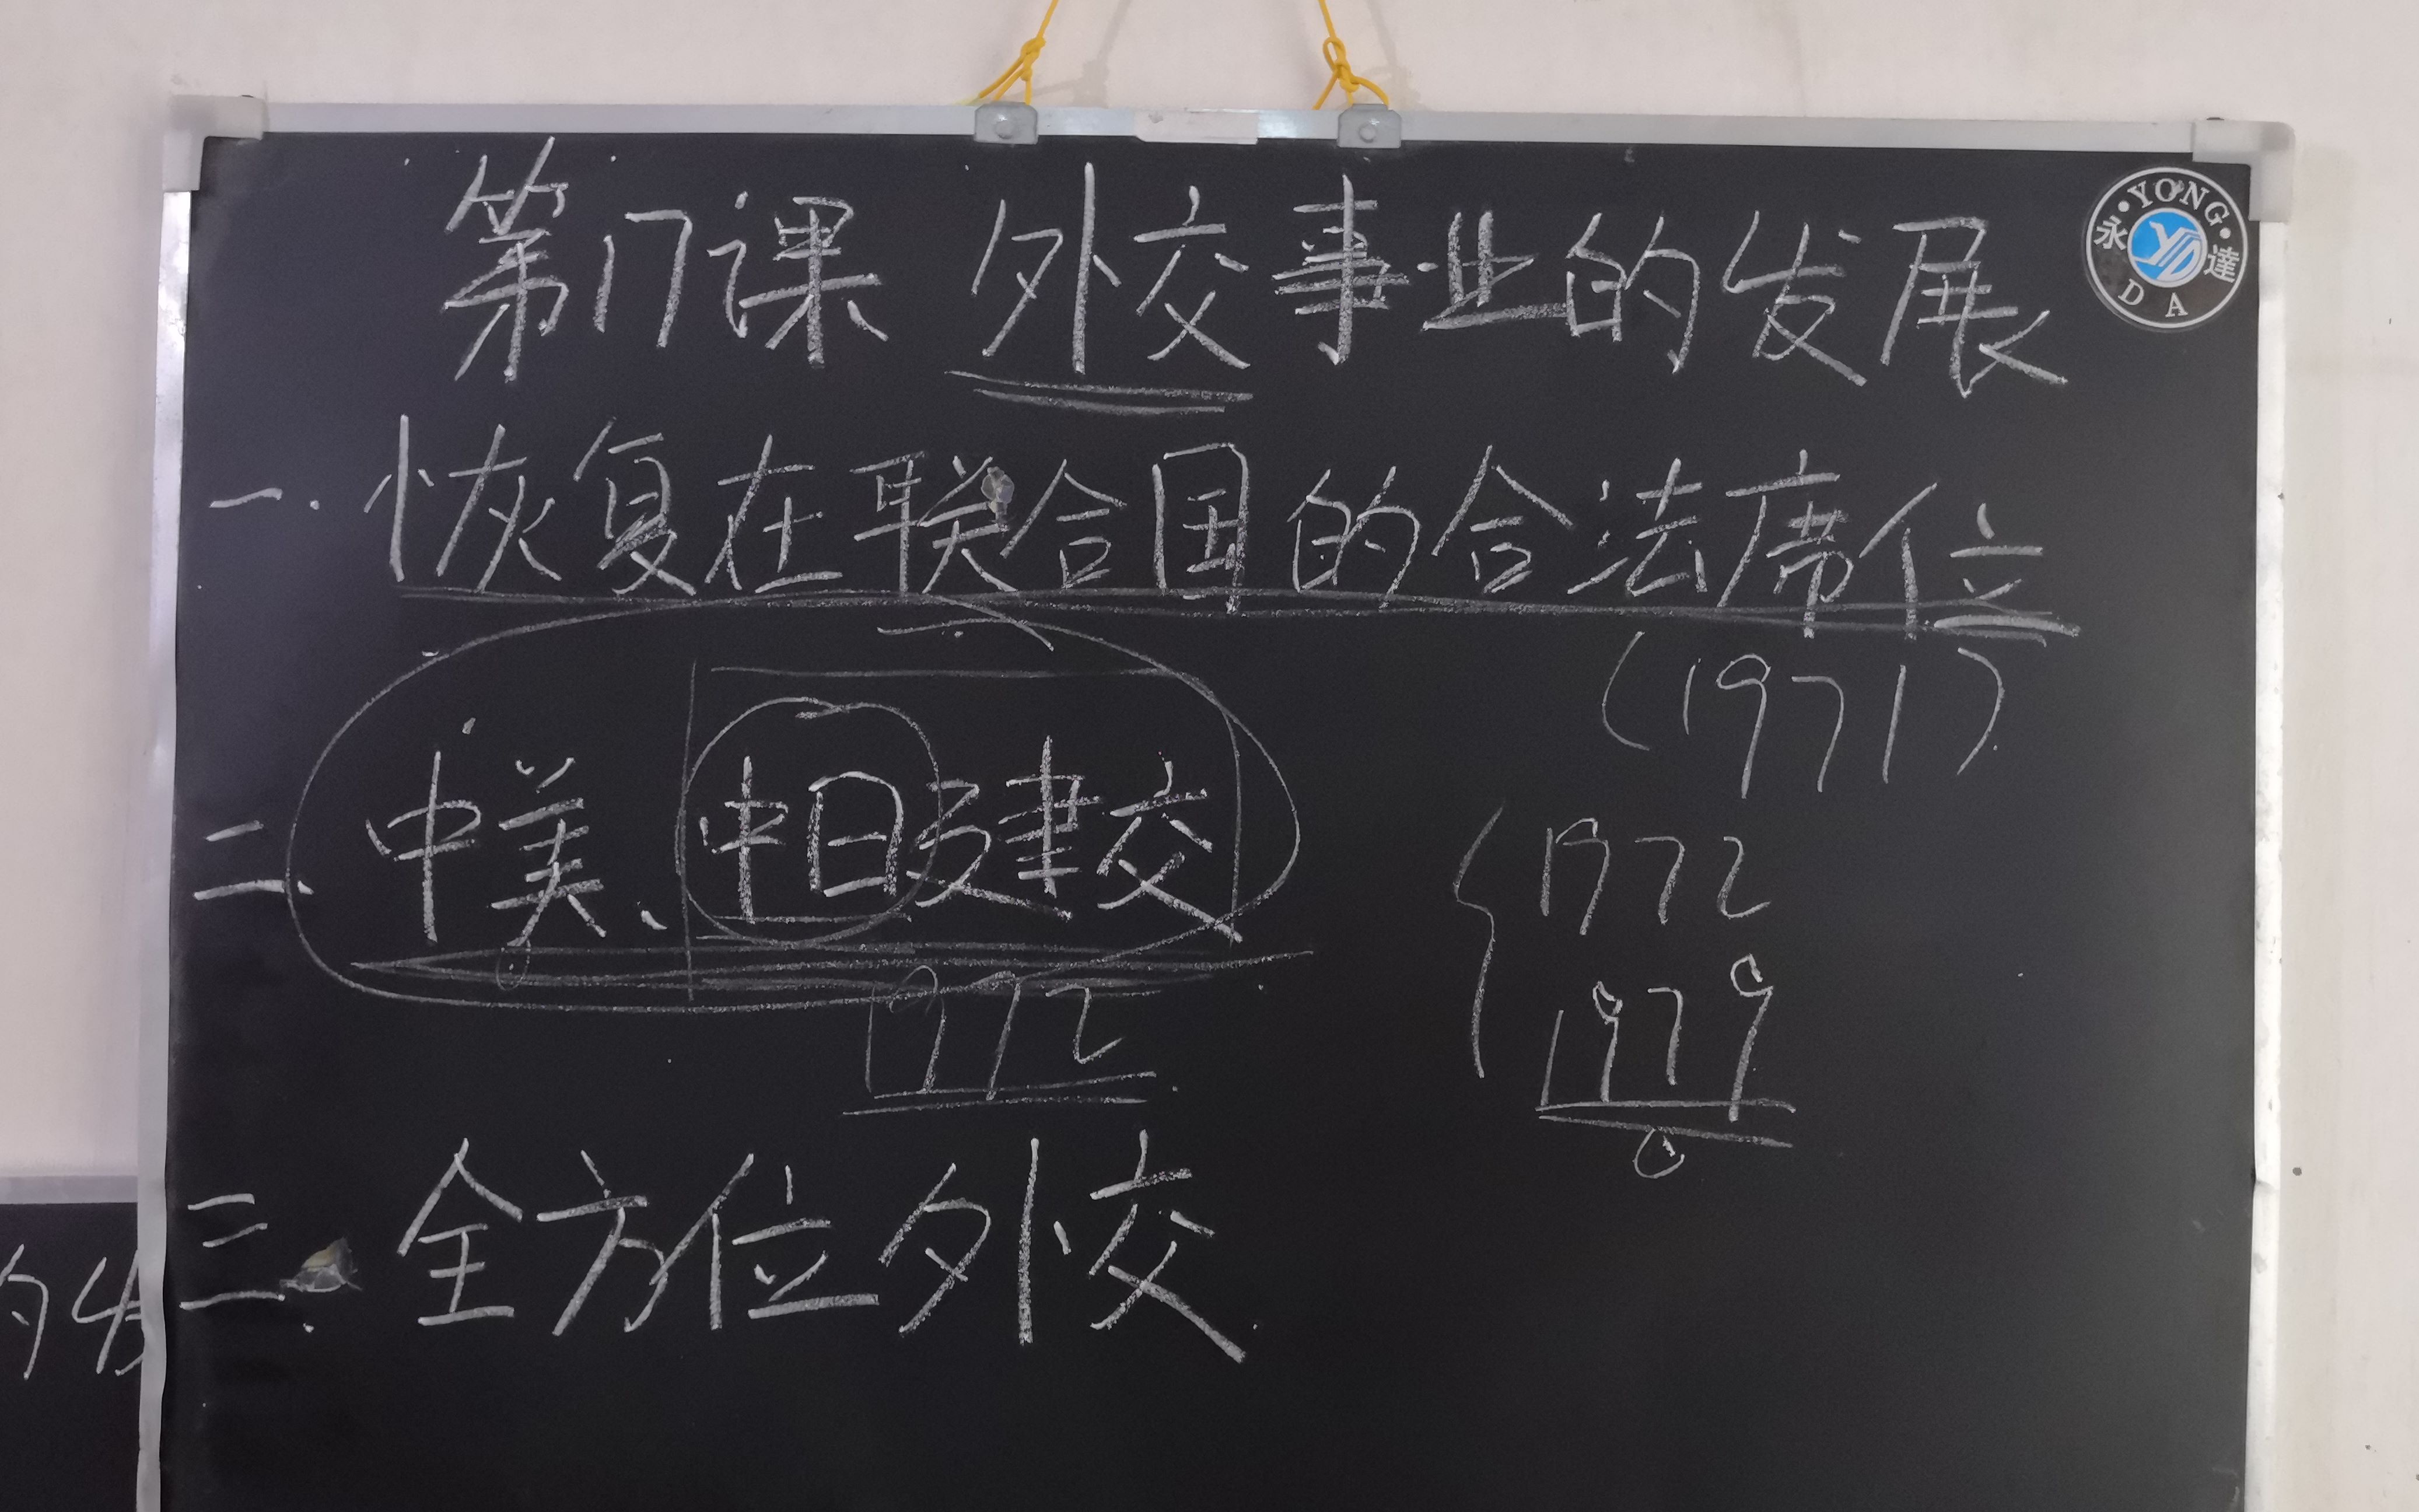 第17课 外交事业的发展
YONG
永 YD 達
DA
一.恢复在联合国的合法席位
(1971)
二、中美、中日建交
1972
1972
1979
三、全方位外交
的发